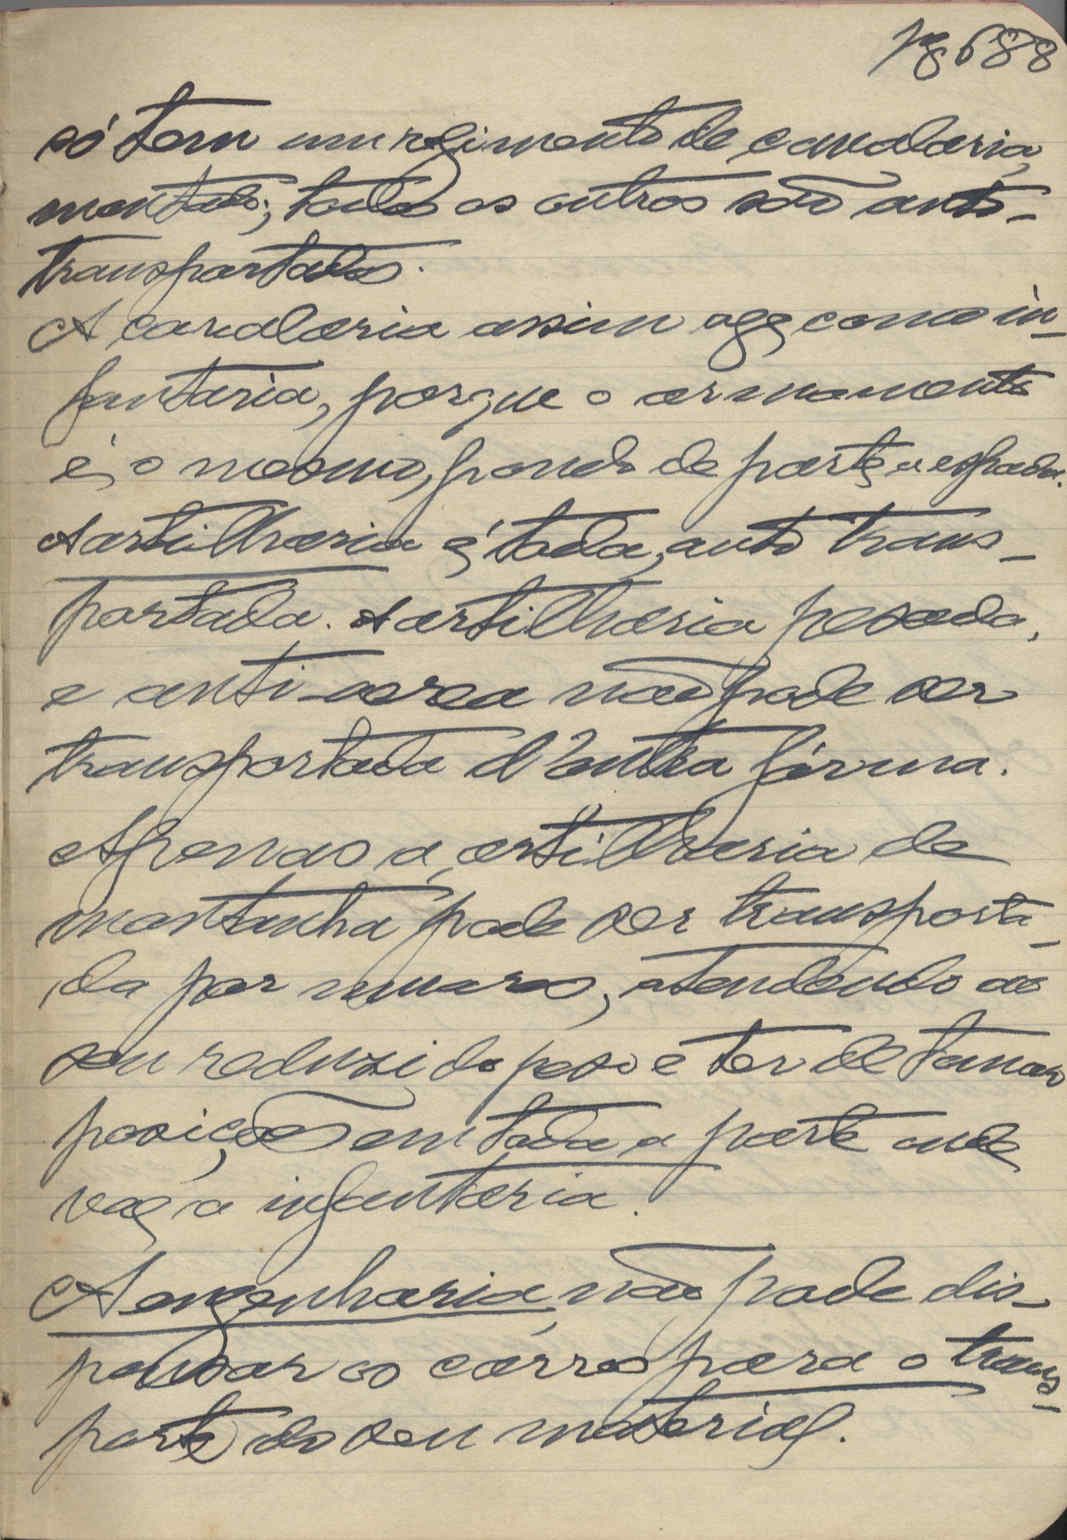 Pg 688
só tem um regimento de cavalaria,
montado; todos os outros são auto-
transportados.
A cavalaria assim age como in-
fantaria, porque o armamento
é, o mesmo, pondo de parte, a espada.
A artilharia é, toda, auto trans-
portada. A artilharia pesada,
e anti-aerea não pode ser
transportada d'outra fórma.
Apenas a, artilharia de
montanha pode ser transporta-
da por muares, atendendo ao
seu reduzido peso e ter de tomar
posição em toda a parte onde
vae, a infantaria.
A engenharia, não pode dis-
pensar os carros para o trans-
porte do seu material.